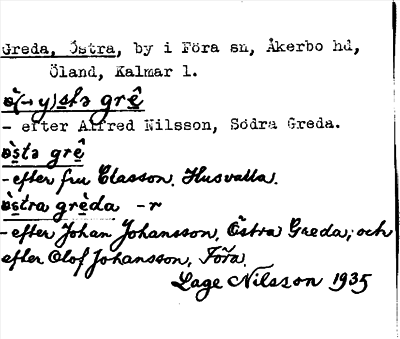 Greda, Östra, by i Föra sn, Åkerbo hd,
Öland, Kalmar l.
ø̀(→y)stə grê
- efter Alfred Nilsson, Södra Greda.
ø̀stə grê
- efter fru Claesson, Husvalla.
ø̀stra grèda -r
- efter Johan Johansson, Östra Greda, och
efter Olof Johansson, Föra.
Lage Nilsson 1935